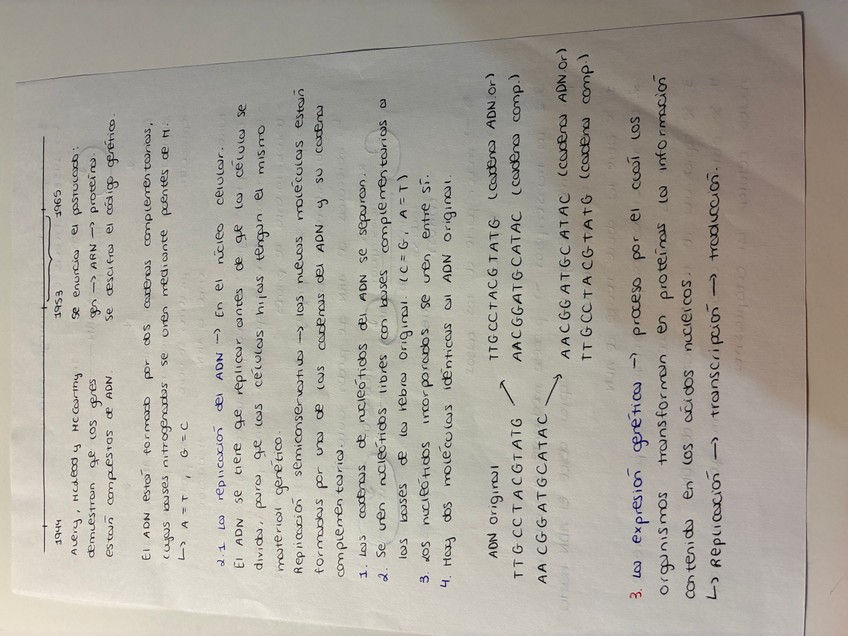 1944 1953 1965
Avery, McLeod y McCarthy
demuestran qe los genes
están compuestos de ADN
Se enuncia el postulado:
gen → ARN → proteína.
Se descifra el código genético.
El ADN está formado por dos cadenas complementarias,
cuyas bases nitrogenadas se unen mediante puentes de H.
↳ A=T, G≡C
2.1 La replicación del ADN → En el núcleo celular.
El ADN se tiene qe replicar antes de qe la célula se
divida, para qe las células hijas tengan el mismo
material genético.
Replicación semiconservativa → las nuevas moléculas están
formadas por una de las cadenas del ADN y su cadena
complementaria.
1. Las cadenas de nucleótidos del ADN se separan.
2. Se unen nucleótidos libres con bases complementarias a
las bases de la hebra original. (C≡G, A=T)
3. Los nucleótidos incorporados se unen entre sí.
4. Hay dos moléculas idénticas al ADN original.
ADN original
TTGCCTACGTATG
AACGGATGCATAC
TTGCCTACGTATG (cadena ADN or)
AACGGATGCATAC (cadena comp.)
AACGGATGCATAC (cadena ADN or)
TTGCCTACGTATG (cadena comp.)
3. La expresión genética → proceso por el cual los
organismos transforman en proteínas la información
contenida en los ácidos nucleicos.
↳ Replicación → transcripción → traducción.